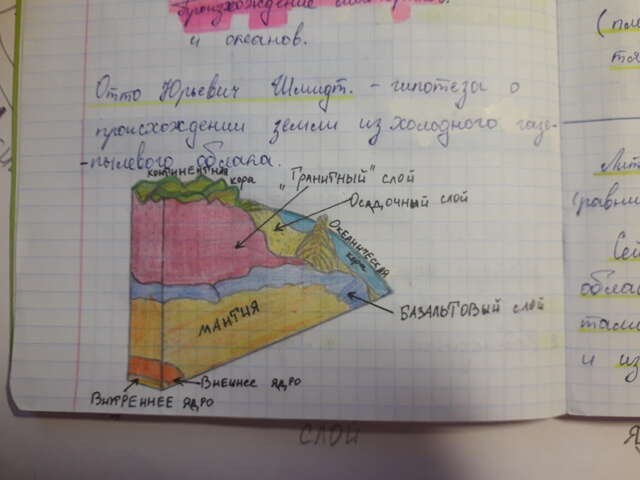 происхождение
и океанов.
Отто Юрьевич Шмидт. - гипотеза о
происхождении земли из холодного газо-
-пылевого облака.
континентная кора
"Гранитный" слой
Осадочный слой
Океаническая кора
Базальтовый слой
Мантия
Внешнее ядро
Внутреннее ядро
слой
(пл
тя
Лит
(равни
Се
обла
там
и из
Я